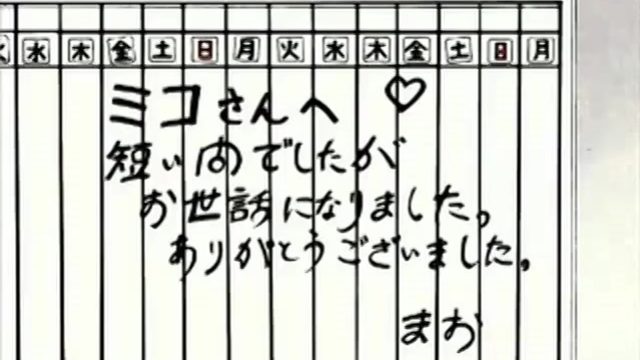 水 木 金 土 日 月 火 水 木 金 土 日 月
ミコさんへ ♡
短い间でしたが
お世話になりました。
ありがとうございました。
まお